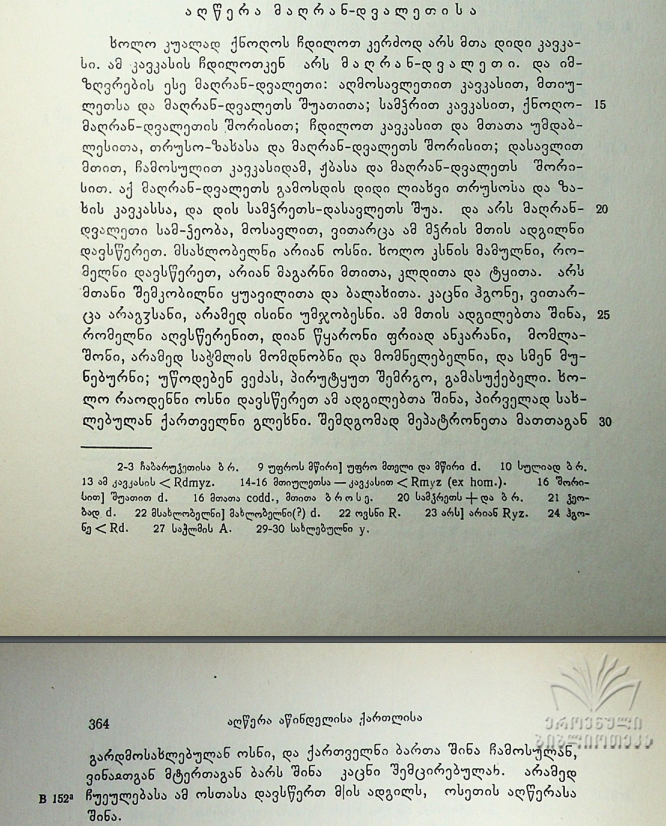 აღწერა მაღრან-დვალეთისა
ხოლო კუალად ქნოღოს ჩდილოთ კერძოდ არს მთა დიდი კავკა-
სი. ამ კავკასის ჩდილოთკენ არს მაღრან-დვალეთი. და იმ-
ზღვრების ესე მაღრან-დვალეთი: აღმოსავლეთით კავკასით, მთიუ-
ლეთსა და მაღრან-დვალეთს შუათითა; სამჴრით კავკასით, ქნოღო- 15
მაღრან-დვალეთის შორისით; ჩდილოთ კავკასით და მთათა უმდაბ-
ლესითა, თრუსო-ზახასა და მაღრან-დვალეთს შორისით; დასავლით
მთით, ჩამოსულით კავკასიდამ, ჟბასა და მაღრან-დვალეთს შორი-
სით. აქ მაღრან-დვალეთს გამოსდის დიდი ლიახვი თრუსოსა და ზა-
ხის კავკასსა, და დის სამჴრეთს-დასავლეთს შუა. და არს მაღრან- 20
დვალეთი სამ-ჴეობა, მოსავლით, ვითარცა ამ მჴრის მთის ადგილნი
დავსწერეთ. მსახლობელნი არიან ოსნი. ხოლო კსნის მამულნი, რო-
მელნი დავსწერეთ, არიან მაგარნი მთითა, კლდითა და ტყითა. არს
მთანი შემკობილნი ყუავილითა და ბალახითა. კაცნი ჰგონე, ვითარ-
ცა არაგჳსანი, არამედ ისინი უმჯობესნი. ამ მთის ადგილებთა შინა, 25
რომელნი აღვსწერენით, დიან წყარონი ფრიად ანკარანი, მომლა-
შონი, არამედ საჭმლის მომდნობნი და მომნელებელნი, და სმენ მუ-
ნებურნი; უწოდებენ ვეძას, პირუტყუთ შემრგო, გამასუქებელი. ხო-
ლო რაოდენნი ოსნი დავსწერეთ ამ ადგილებთა შინა, პირველად სახ-
ლებულან ქართველნი გლეხნი. შემდგომად მეპატრონეთა მათთაგან 30
2-3 ჩაბარუჴეთისა ბრ. 9 უფროს მწირი] უფრო მთელი და მწირი d. 10 სულიად ბრ.
13 ამ კავკასის < Rdmyz. 14-16 მთიულეთსა — კავკასით < Rmyz (ex hom.). 16 შორი-
სით] შუათით d. 16 მთათა codd., მთითა ბროსე. 20 სამჴრეთს + და ბრ. 21 ჴეო-
ბად d. 22 მსახლობელნი] მახლობელნი(?) d. 22 ოვსნი R. 23 არს] არიან Ryz. 24 ჰგო-
ნე < Rd. 27 საჭლმის A. 29-30 სახლებულნი y.
364 აღწერა აწინდელისა ქართლისა
გარდმოსახლებულან ოსნი, და ქართველნი ბართა შინა ჩამოსულან,
ვინათგან მტერთაგან ბარს შინა კაცნი შემცირებულან. არამედ
B 152ª ჩუეულებასა ამ ოსთასა დავსწერთ მ|ის ადგილს, ოსეთის აღწერასა
შინა.